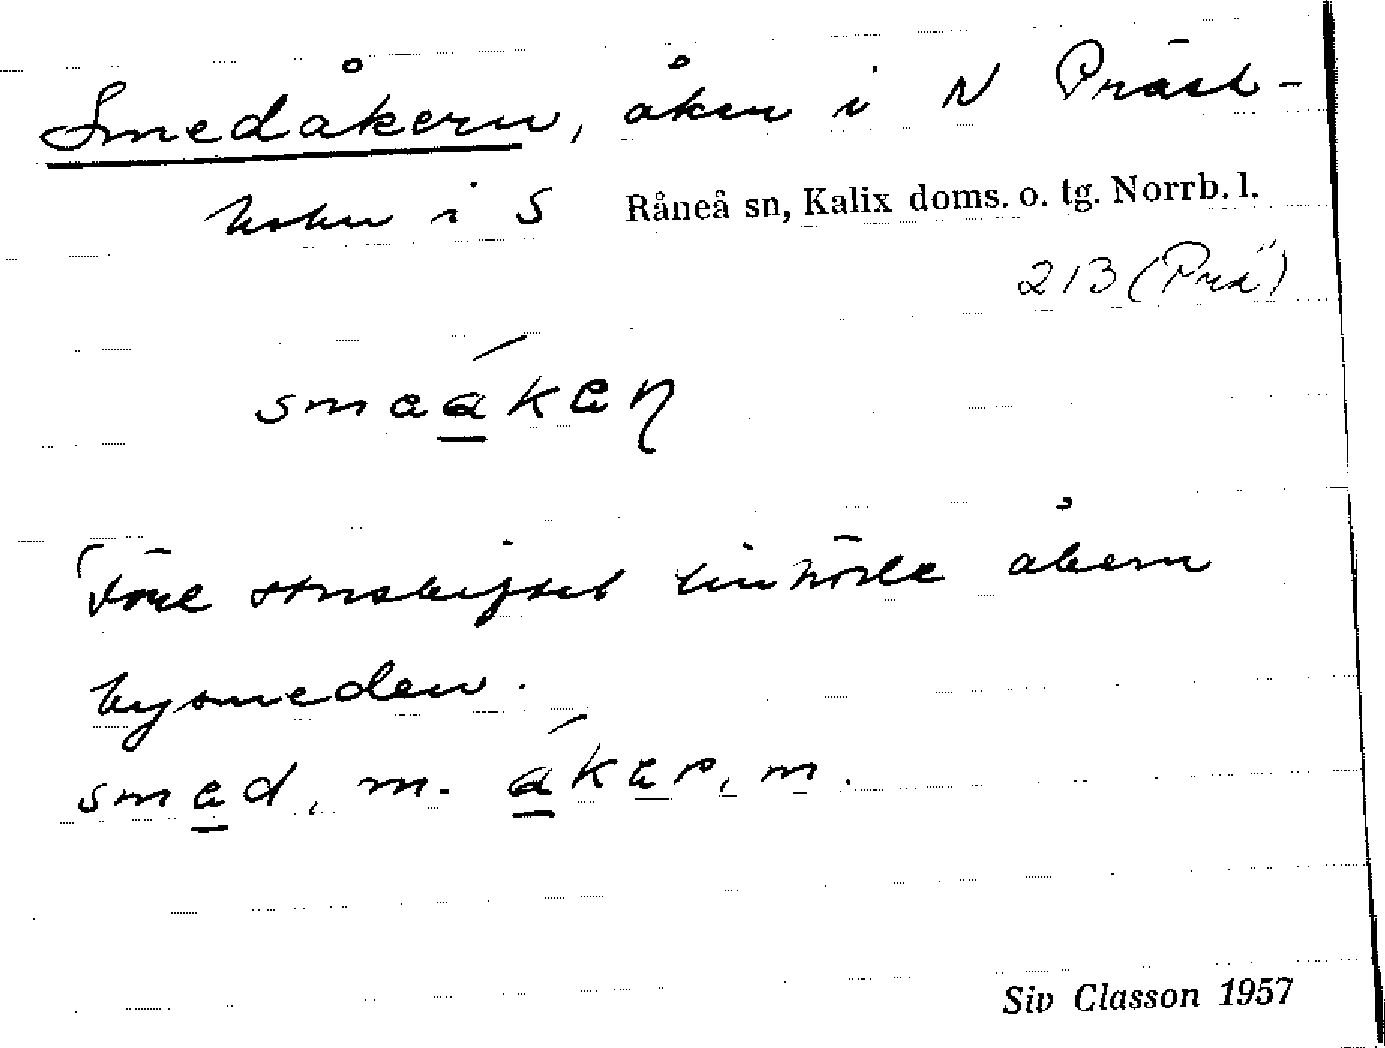 Smedåkern, åker i N Präst-
holm i S Råneå sn, Kalix doms. o. tg. Norrb. l.
213 (Prä)
smeákeɳ
Före storskiftet tillhörde åkern
bysmeden.
smed, m. áker, m.
Siv Classon 1957